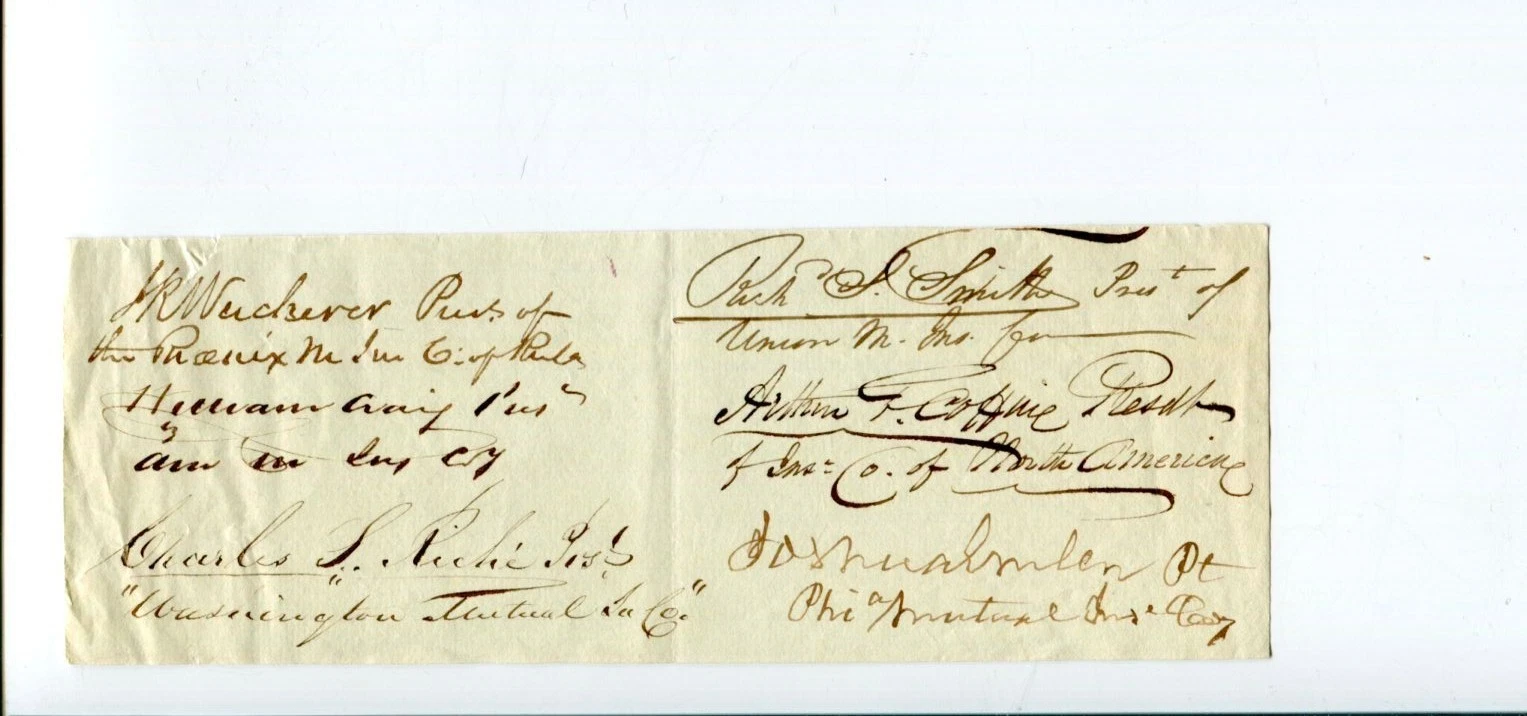 Pres. of
the Phœnix M Ins Co: of Phila
William Craig Pres
Am M Ins Coy
Charles S. Riché Prest
"Washington Mutual In Co."
Richd S. Smith Prest of
Union M. Ins. Co
Arthur G. Coffin Presdt
of Insr Co. of North America
Joshua Emlen Pt
Phia Mutual Inse Coy